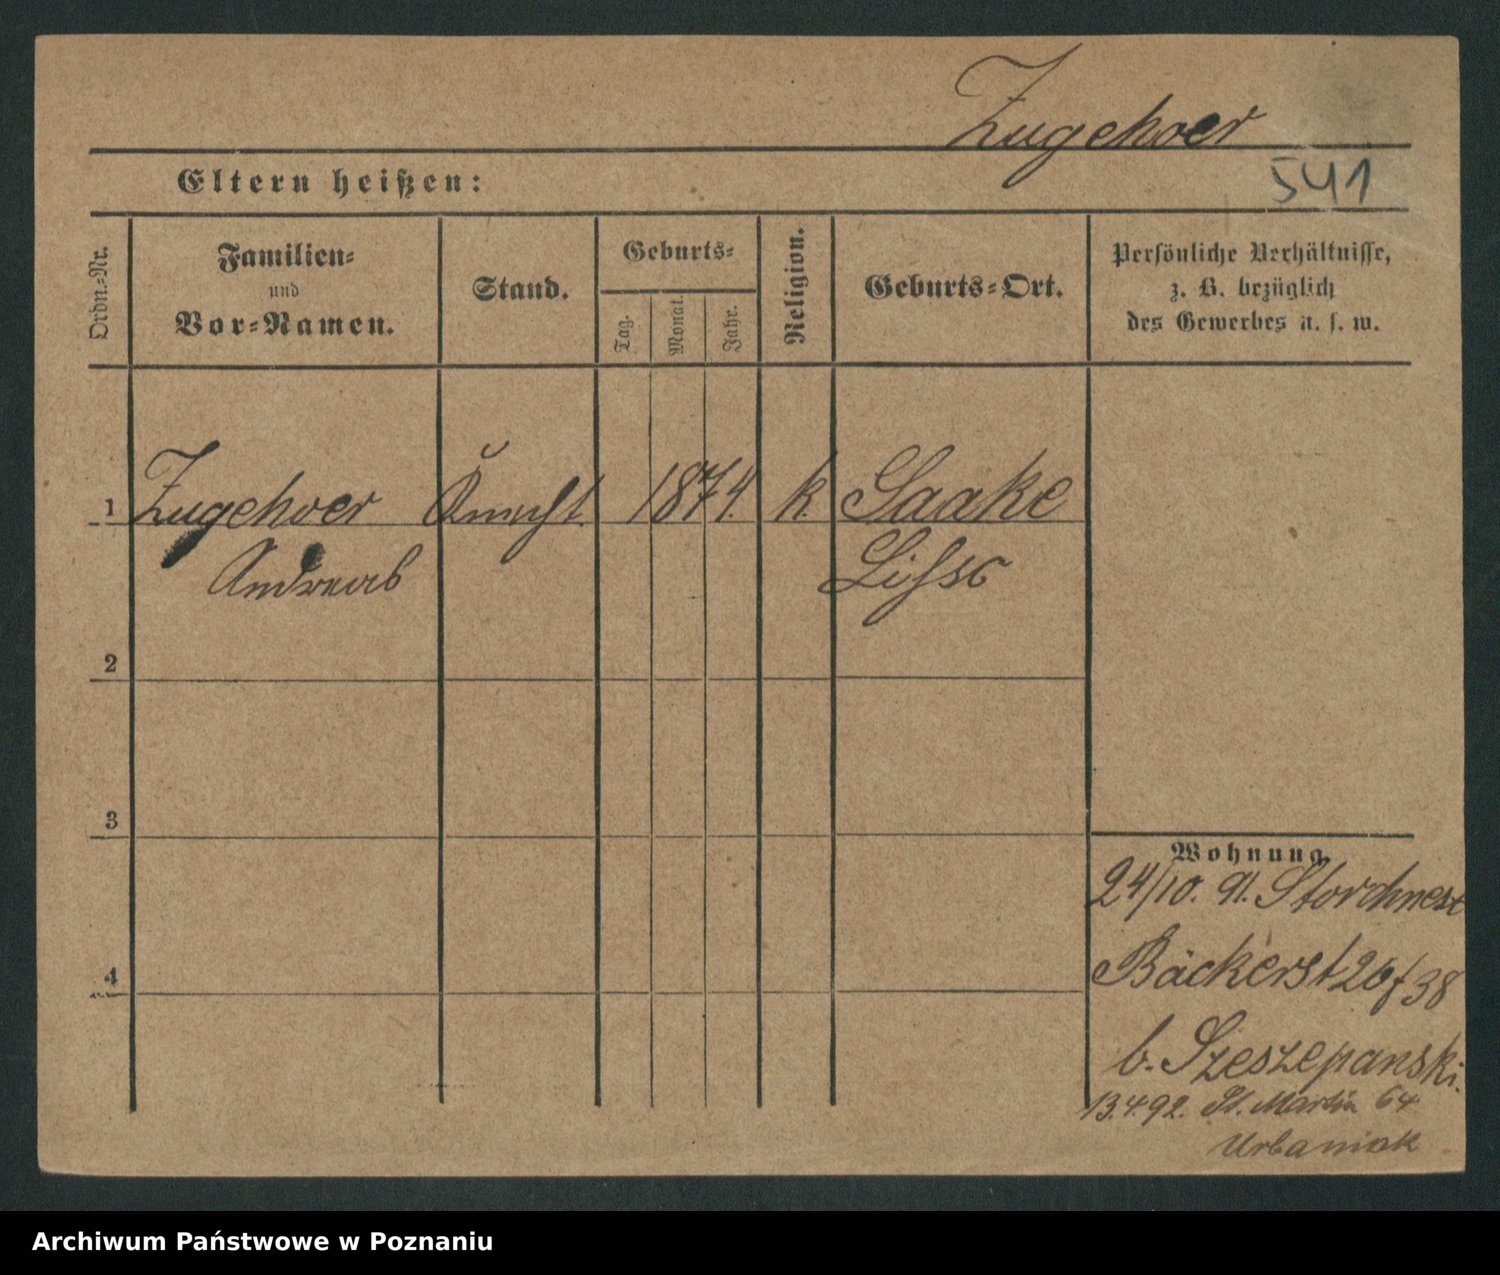 Zugehoer
Eltern heißen:
541
Ordn.-Nr.
Familien-
und
Vor-Namen.
Stand.
Geburts-
Tag.
Monat.
Jahr.
Religion.
Geburts-Ort.
Persönliche Verhältnisse,
z. B. bezüglich
des Gewerbes u. s. w.
1 Zugehoer Knecht. 1874. k. Saake
Andreas Lissa
2
3
4
Wohnung.
24/10. 91. Storchnest
Bäckerst 26 f 38
b. Szeszepanski.
13.4.92. St. Martin 64
Urbaniak
Archiwum Państwowe w Poznaniu